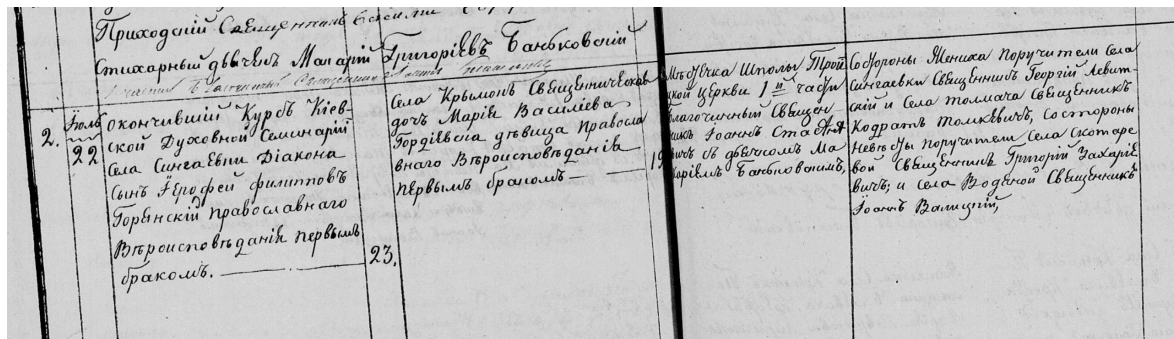 Приходскій Священникъ Василій
Стихарный дьячекъ Макарій Григоріевъ Баньковскій
2.
Іюль
22
окончившій Курсъ Кіев-
ской Духовной Семинаріи
Села Сингаевки Діакона
сынъ Іерофей Филипповъ
Горянскій православнаго
Вѣроисповѣданія первымъ
бракомъ.
23.
Села Крымокъ Священническая
дочь Марія Василіева
Гордіевска дѣвица Правосла
внаго Вѣроисповѣданія
первымъ бракомъ
19
Мѣстечка Шполы Трой
цкой церкви 1й части
Благочинный Священ
никъ Іоаннъ
вичъ съ дьячкомъ Ма
каріемъ Баньковскимъ,
Со стороны Жениха поручители Села
Сингаевки Священникъ Георгій Левит-
скій и Села Толмача Священникъ
Кодратъ Томкевичъ, со стороны
Невѣсты поручители Села Скотаре
вой Священникъ Григорій Захаріе
вичъ; и села Водяной Священникъ
Іоаннъ Валицкій,